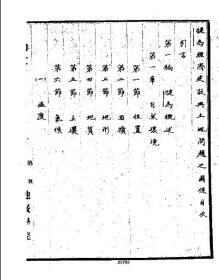 犍為經濟建設與土地問題之關係目次
引言
第一編　犍為概述
第一章　自然環境
第一節　位置
第二節　面積
第三節　地形
第四節　地質
第五節　土壤
第六節　氣候
(一)　溫度